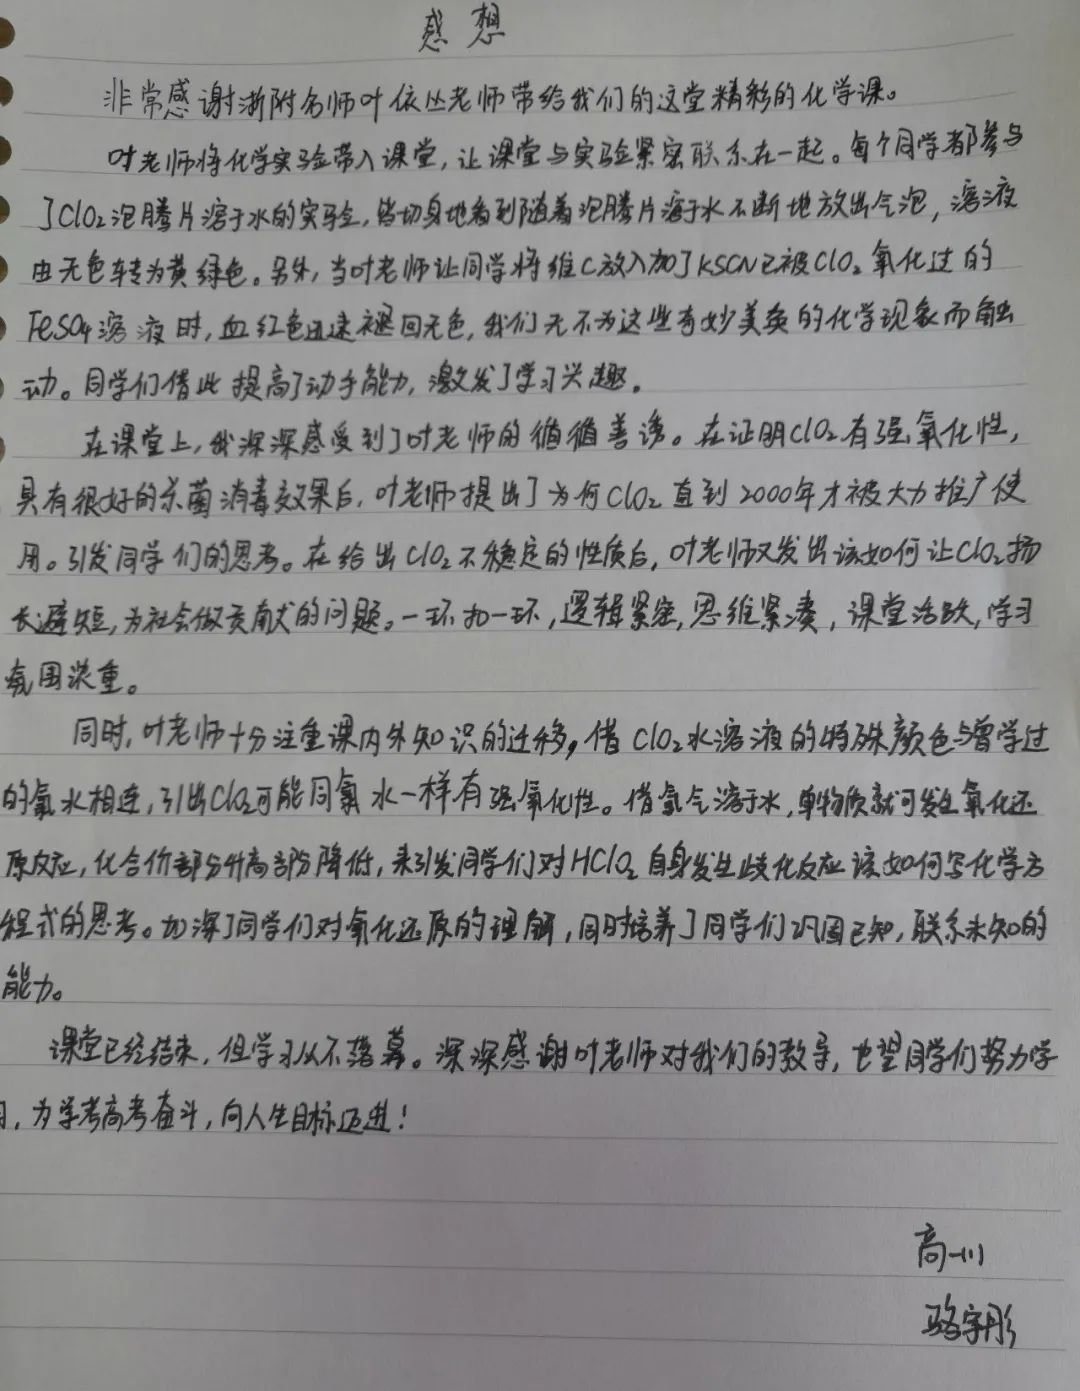 感想
非常感谢浙附名师叶依丛老师带给我们的这堂精彩的化学课。
叶老师将化学实验带入课堂，让课堂与实验紧密联系在一起。每个同学都参与
了ClO₂泡腾片溶于水的实验，皆切身地看到随着泡腾片溶于水不断地放出气泡，溶液
由无色转为黄绿色。另外，当叶老师让同学将维C放入加了KSCN已被ClO₂氧化过的
FeSO₄溶液时，血红色迅速褪回无色，我们无不为这些奇妙美奂的化学现象而触
动。同学们借此提高了动手能力，激发了学习兴趣。
在课堂上，我深深感受到了叶老师的循循善诱。在证明ClO₂有强氧化性，
具有很好的杀菌消毒效果后，叶老师提出了为何ClO₂直到2000年才被大力推广使
用。引发同学们的思考。在给出ClO₂不稳定的性质后，叶老师又发出该如何让ClO₂扬
长避短，为社会做贡献的问题。一环扣一环，逻辑紧密，思维紧凑，课堂活跃，学习
氛围浓重。
同时，叶老师十分注重课内外知识的迁移，借ClO₂水溶液的特殊颜色与曾学过
的氯水相连，引出ClO₂可能同氯水一样有强氧化性。借氯气溶于水，单物质就可发生氧化还
原反应，化合价部分升高部分降低，来引发同学们对HClO₂自身发生歧化反应该如何写化学方
程式的思考。加深了同学们对氧化还原的理解，同时培养了同学们巩固已知，联系未知的
能力。
课堂已经结束，但学习从不落幕。深深感谢叶老师对我们的教导，也望同学们努力学
习，为学考高考奋斗，向人生目标迈进！
高一11
骆宇彤